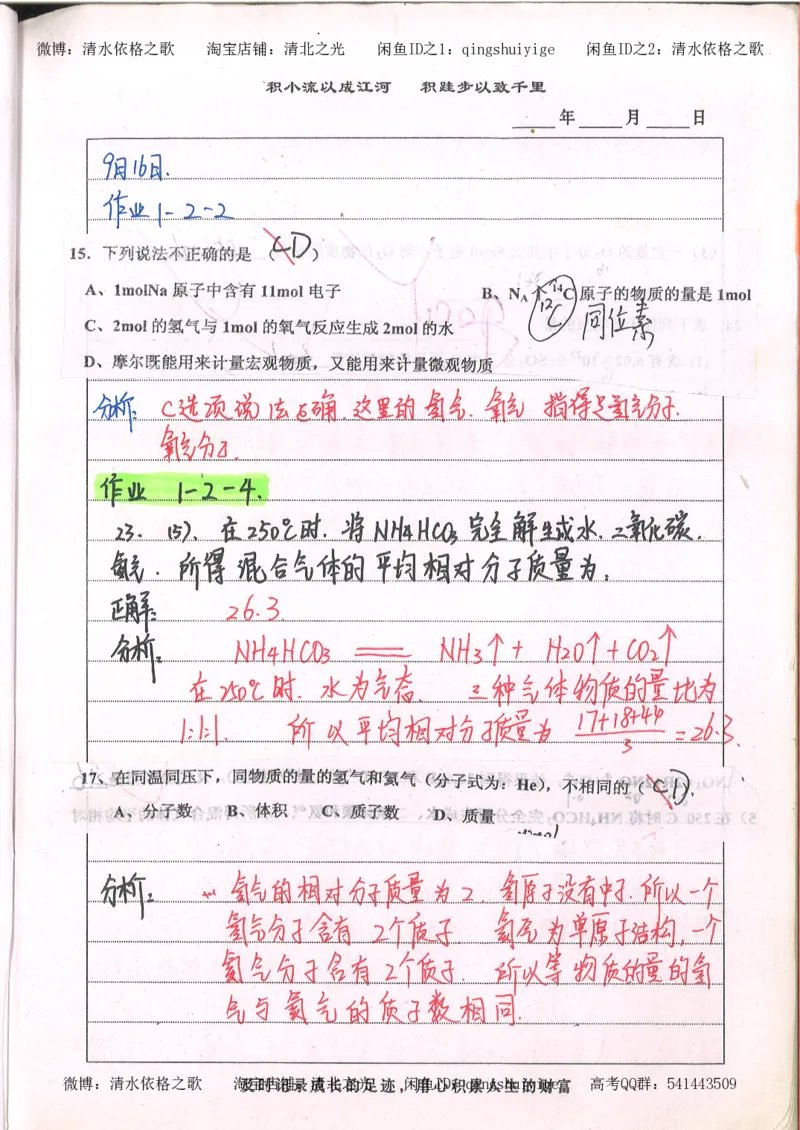 微博：清水依格之歌 淘宝店铺：清北之光 闲鱼ID之1：qingshuiyige 闲鱼ID之2：清水依格之歌
积小流以成江河 积跬步以致千里
____年____月____日
9月16日.
作业1-2-2
15．下列说法不正确的是（CD）
A、1molNa 原子中含有 11mol 电子 B、NA个 14C 原子的物质的量是 1mol
12C 同位素
C、2mol 的氢气与 1mol 的氧气反应生成 2mol 的水
D、摩尔既能用来计量宏观物质，又能用来计量微观物质
分析: C选项说法正确.这里的氢气.氧气 指得是氢气分子.
氧气分子.
作业 1-2-4.
23. (5). 在250℃时.将NH4HCO3完全解生成水.二氧化碳.
氨气.所得混合气体的平均相对分子质量为:
正解: 26.3.
分析: NH4HCO3 === NH3↑+ H2O↑+CO2↑
在250℃时.水为气态. 三种气体物质的量比为
1:1:1. 所以平均相对分子质量为 17+18+44/3 =26.3.
17、在同温同压下，同物质的量的氢气和氦气（分子式为：He），不相同的（CD）.
A、分子数 B、体积 C、质子数 D、质量
分析: 氢气的相对分子质量为2.氢原子没有中子.所以一个
氢气分子含有2个质子. 氦气为单原子结构,一个
氦气分子含有2个质子. 所以等物质的量的氢
气与氦气的质子数相同.
及时记录成长的足迹，用心积累人生的财富
微博：清水依格之歌 淘宝店铺：清北之光 闲鱼ID：qingshuiyige 高考QQ群：541443509